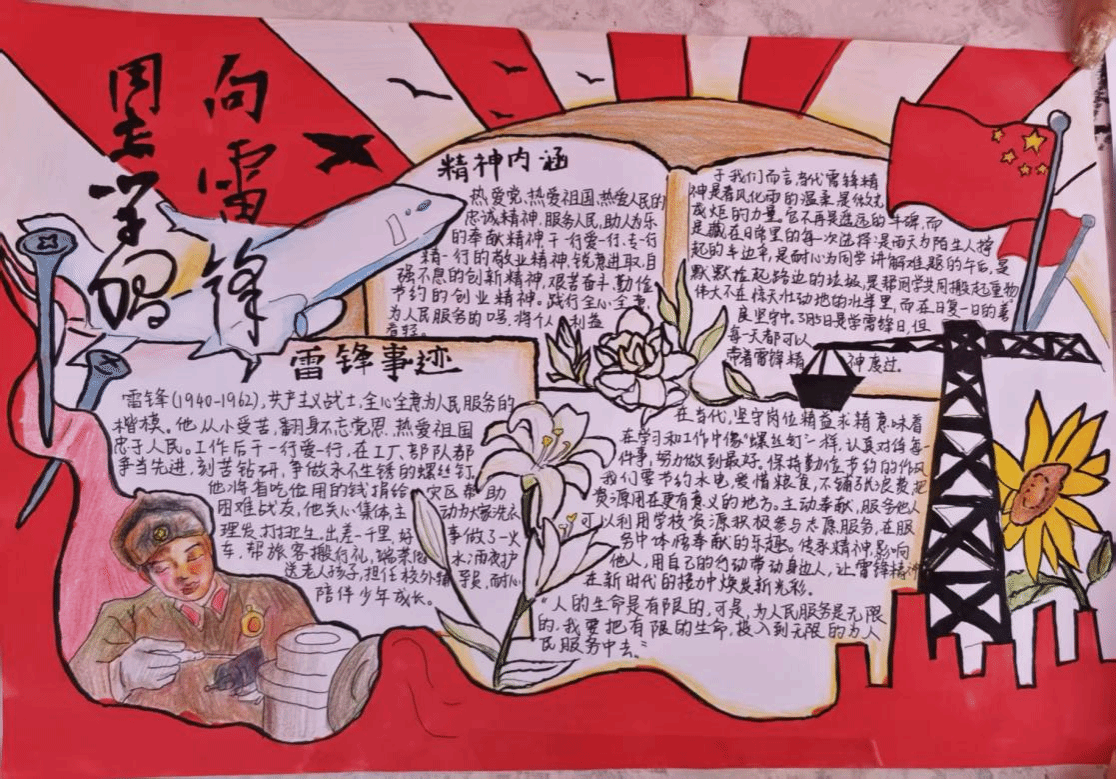 向雷锋
同志学习
精神内涵
热爱党、热爱祖国、热爱人民的
忠诚精神,服务人民、助人为乐
的奉献精神,干一行爱一行、专一行
精一行的敬业精神,锐意进取、自
强不息的创新精神,艰苦奋斗、勤俭
节约的创业精神。践行全心全意
为人民服务的口号,将个人利益
看轻。
于我们而言,当代雷锋精
神是春风化雨的温柔,是微光
成炬的力量。它不再是遥远的丰碑,而
是藏在日常里的每一次选择:是雨天为陌生人撑
起的半边伞,是耐心为同学讲解难题的午后,是
默默捡起路边的垃圾,是帮同学共同搬起重物
伟大不在惊天壮动地的壮举里,而在日复一日的善
良坚守中。3月5日是学雷锋日,但
每一天都可以
带着雷锋精神度过。
雷锋事迹
雷锋(1940-1962),共产主义战士,全心全意为人民服务的
楷模。他从小受苦,翻身不忘党恩,热爱祖国
忠于人民。工作后干一行爱一行,在工厂、部队都
争当先进,刻苦钻研,争做永不生锈的螺丝钉。
他将省吃俭用的钱捐给灾区帮助
困难战友,他关心集体主动为大家洗衣
理发、打扫卫生,出差一千里,好事做了一火
车,帮旅客搬行礼,端茶倒水,雨夜护
送老人孩子,担任校外辅导员,耐心
陪伴少年成长。
在当代,坚守岗位精益求精意味着
在学习和工作中像"螺丝钉"一样,认真对待每一
件事,努力做到最好。保持勤俭节约的作风
我们要节约水电,爱惜粮食,不铺张浪费,把
资源用在更有意义的地方。主动奉献,服务他人
可以利用学校资源积极参与志愿服务,在服
务中体悟奉献的乐趣。传承精神,影响
他人,用自己的行动带动身边人,让雷锋精神
在新时代的接力中焕发新光彩。
"人的生命是有限的,可是,为人民服务是无限
的,我要把有限的生命,投入到无限的为人
民服务中去。"